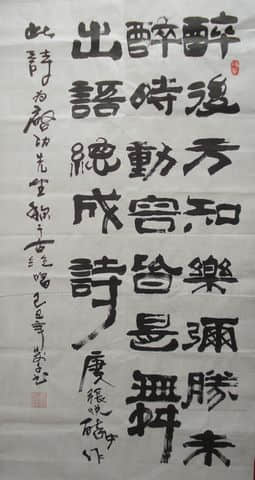 醉後方知樂彌勝未
醉時動容皆是舞
出語總成詩
唐張說醉中作
此詩为啓功先生称千古绝唱己丑年书